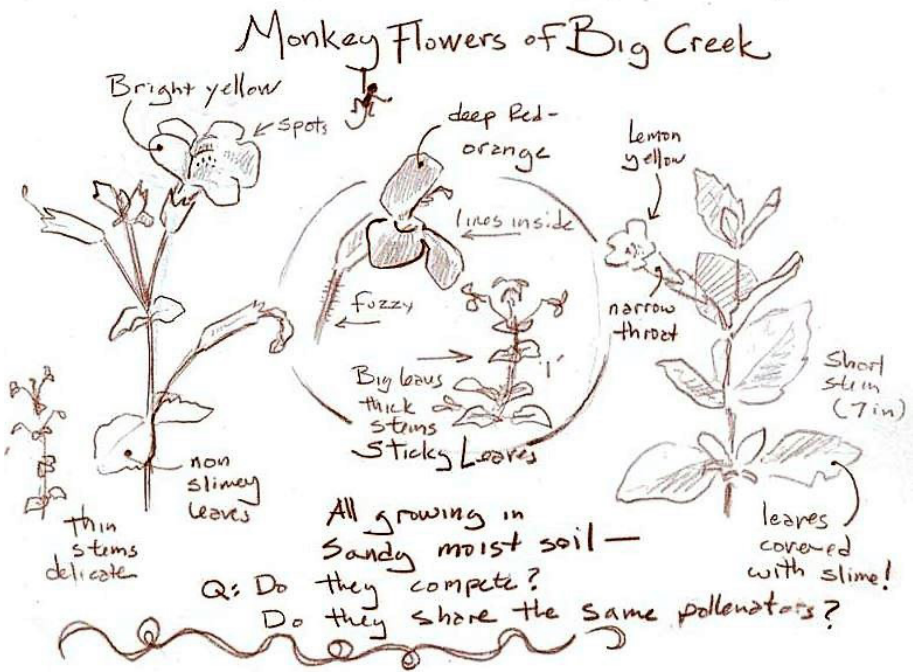 Monkey Flowers of Big Creek
Bright yellow
spots
deep Red-
orange
lines inside
fuzzy
Lemon
yellow
narrow
throat
Big leaves
thick
stems
Sticky Leaves
1'
Short
stem
(7in)
non
slimey
leaves
Thin
stems
delicate
leaves
covered
with slime!
All growing in
Sandy moist soil—
Q: Do they compete?
Do they share the same pollenators?